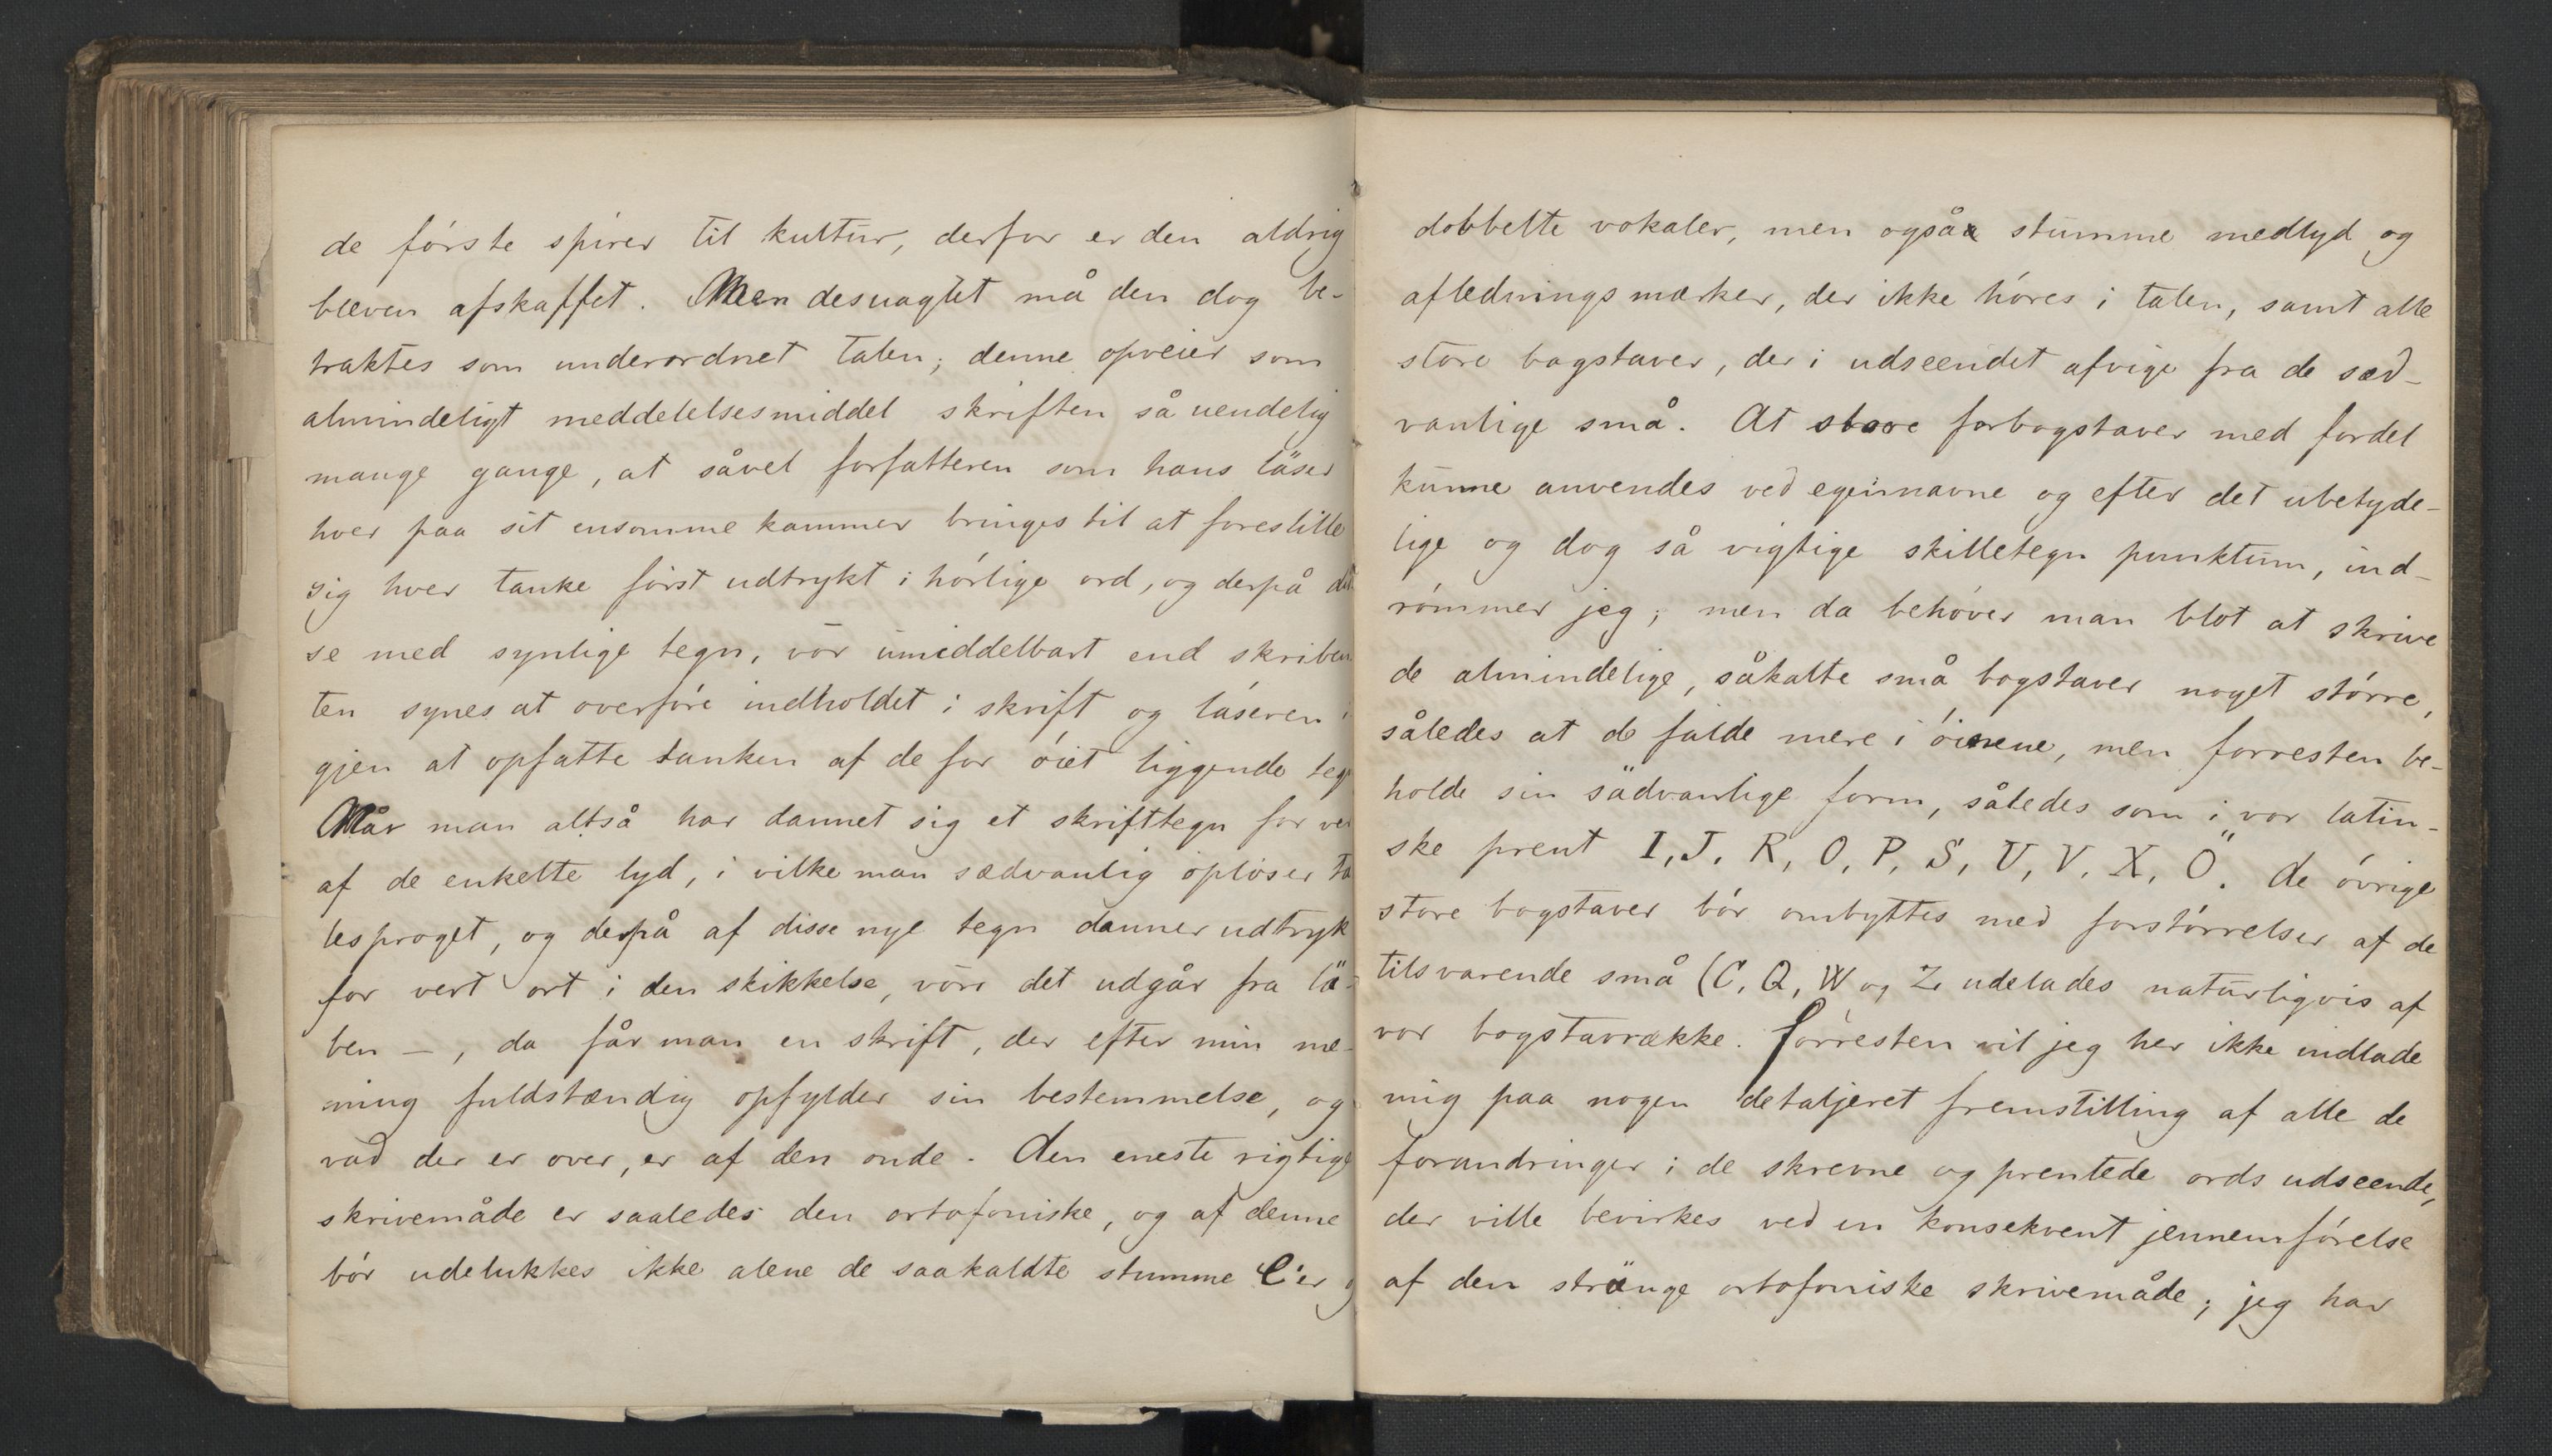 de förste spirer til kultur, derfor er den aldrig
bleven afskaffet. Men desuagtet må den dog be-
traktes som underordnet talen; denne opveier som
almindeligt meddelelsesmiddel skriften så uendelig
mange gange, at såvel forfatteren som hans läser
hver paa sit ensomme kammer bringes til at forestille
sig hver tanke först udtrykt i hörlige ord, og derpå
se med synlige tegn, vor umiddelbart end skriben
ten synes at overföre indholdet i skrift og läseren i
gjen at opfatte tanken af de for öiet liggende teg
Når man altså har dannet sig et skrifttegn for ver
af de enkelte lyd, i vilke man sædvanlig oplöser ta
lesproget, og derpå af disse nye tegn danner udtryk
for vert ort i den skikkelse, vori det udgår fra lä-
ben —, da får man en skrift, der efter min me-
ning fuldstændig opfylder sin bestemmelse, og
vad der er over, er af den onde. Den eneste rigtige
skrivemåde er saaledes den ortofoniske, og af denne
bör udelukkes ikke alene de saakaldte stumme e'er o
dobbelte vokaler, men også stumme medlyd og
afledningsmærker, der ikke höres i talen, samt alle
store bogstaver, der i udseendet afvige fra de sæd-
vanlige små. At store forbogstaver med fordel
kunne anvendes ved egennavne og efter det ubetyde-
lige og dog så vigtige skilletegn punktum, ind-
römmer jeg; men da behöver man blot at skrive
de almindelige, såkalte små bogstaver noget större,
således at de falde mere i öinene, men forresten be-
holde sin sädvanlige form, således som i vor latin-
ske prent I, J, R, O, P, S, U, V, X, Ö. de övrige
store bogstaver bör ombyttes med forstörrelser af de
tilsvarende små (C, Q, W og Z udelades naturligvis af
vor bogstavrække. Forresten vil jeg her ikke indlade
mig paa nogen detaljeret fremstilling af alle de
forandringer i de skrevne og prentede ords udseende,
der ville bevirkes ved en konsekvent jennemförelse
af den stränge ortofoniske skrivemåde; jeg har